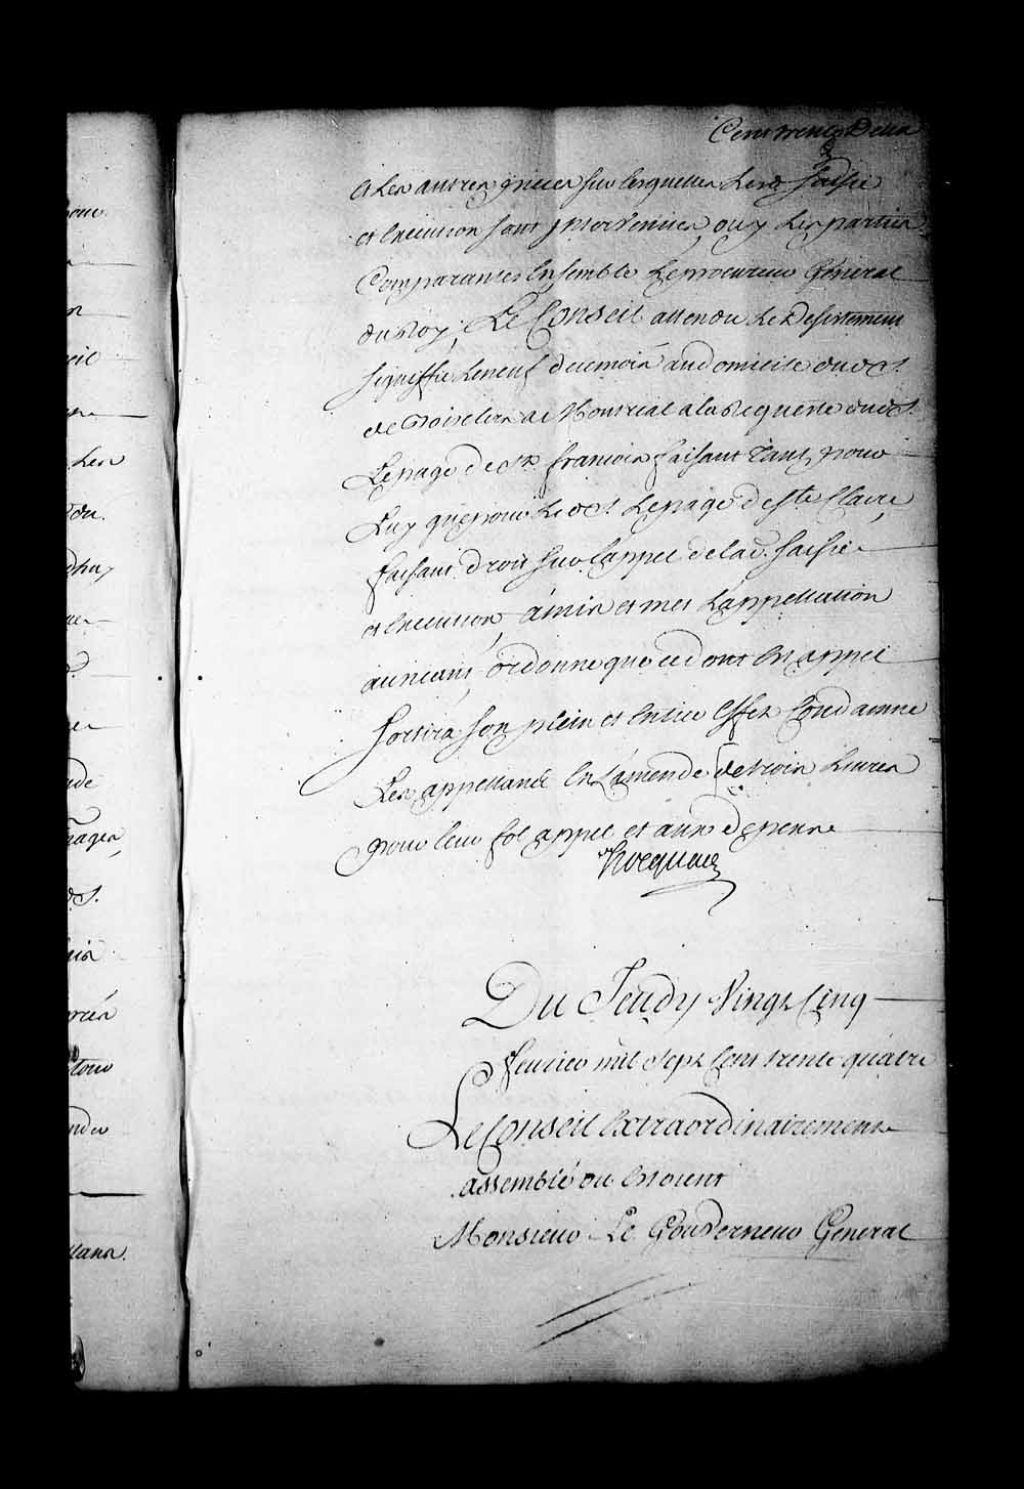 Cent trente Deux
& Les autres pieces sur lesquelles Lesd. saisie
et execution sont jntervenües, ouy Les parties
Comparantes Ensemble Le procureur General
du Roy; Le Conseil attendu Le Desistement
signiffié Le neuf de ce mois au domicile dud. S.
de a Montreal a la Requeste dud. S.
Lepage de St. francois faisant tant pour
Luy que pour Led. S. Lepage de Ste Claire,
faisant droit sur L'appel de lad. saisie
et execution, a mis et met L'appellation
au neant, ordonne que ce dont Est appel
sortira son plein et Entier Effet Condamne
Les appellants En L'amende de trois Livres
pour leur fol appel et aux depens
Hocquart
Du Jeudy Vingt Cinq
feurier mil sept Cent trente quatre
Le Conseil Extraordinairement
assemblé ou Estoient
Monsieur Le Gouverneur General